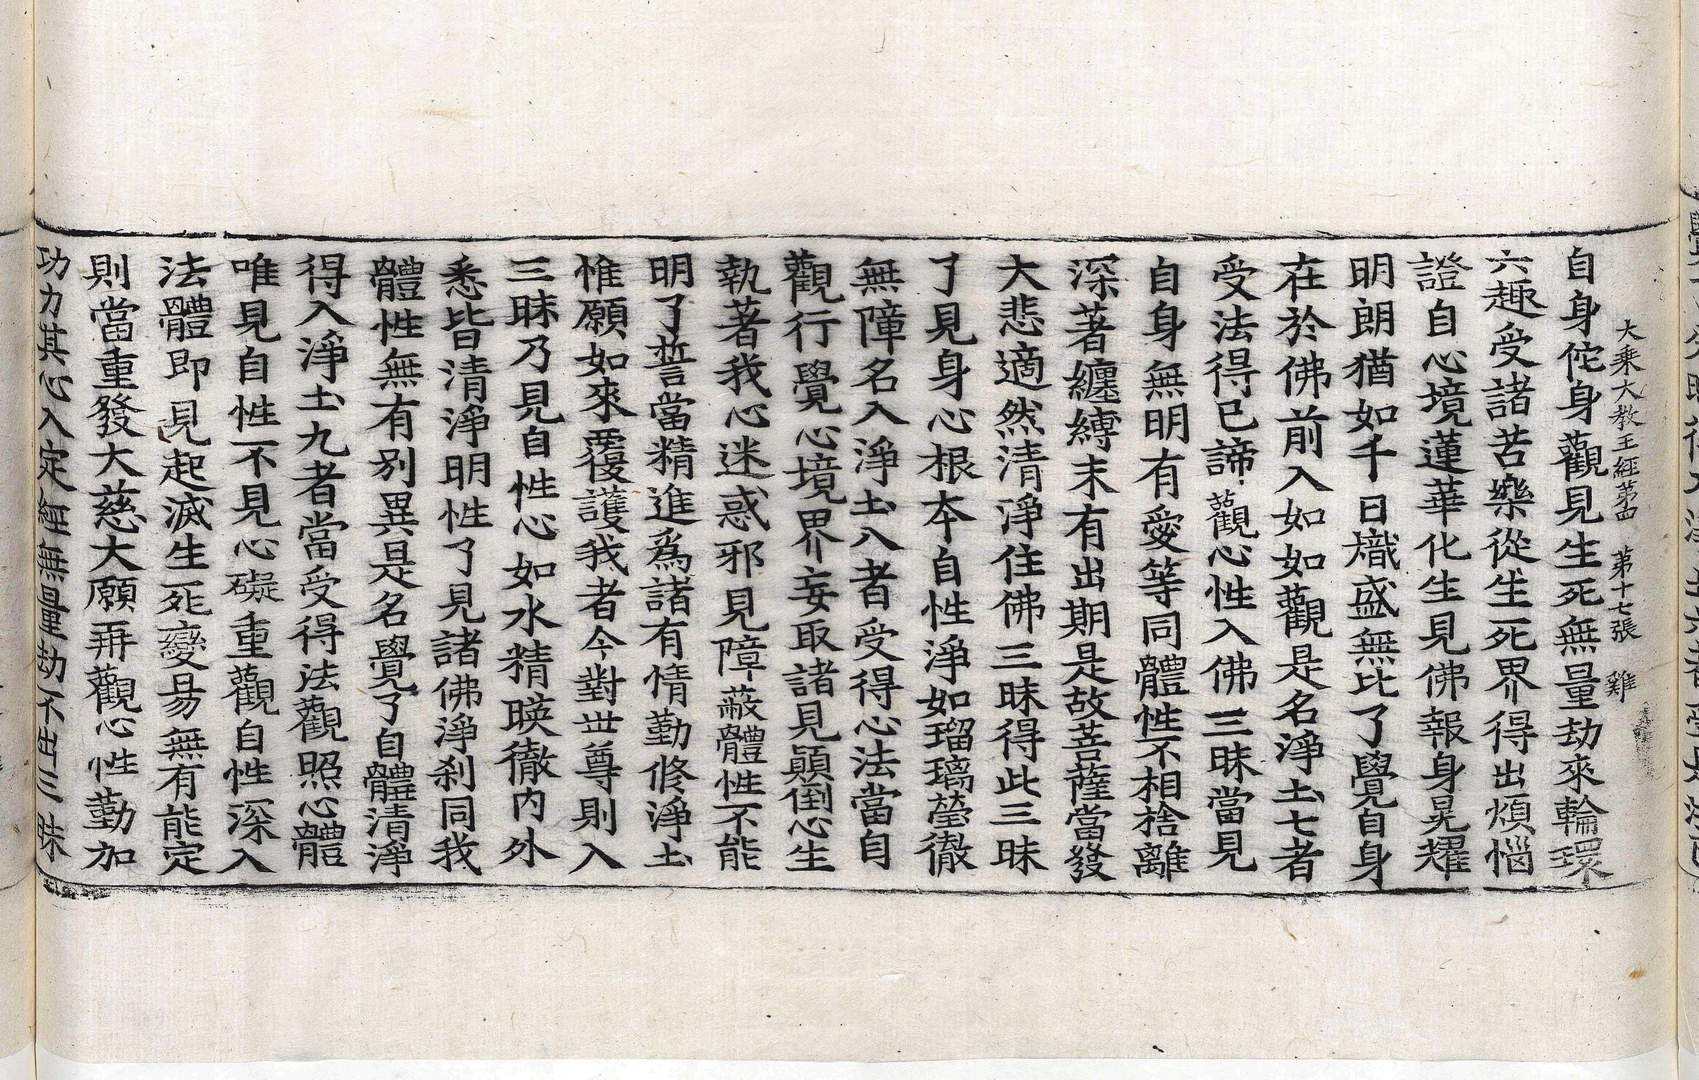 大乘大教王經第四　第十七張　雞
自身佗身觀見生死無量劫來輪環
六趣受諸苦樂從生死界得出煩惱
證自心境蓮華化生見佛報身晃耀
明朗猶如千日熾盛無比了覺自身
在於佛前入如如觀是名淨土七者
受法得已諦觀心性入佛三昧當見
自身無明有愛等同體性不相捨離
深著纏縛末有出期是故菩薩當發
大悲適然清淨住佛三昧得此三昧
了見身心根本自性淨如瑠璃瑩徹
無障名入淨土八者受得心法當自
觀行覺心境界妄取諸見顛倒心生
執著我心迷惑邪見障蔽體性不能
明了誓當精進爲諸有情勤修淨土
惟願如來覆護我者今對世尊則入
三昧乃見自性心如水精暎徹內外
悉皆清淨明性了見諸佛淨刹同我
體性無有別異是名覺了自體清淨
得入淨土九者當受得法觀照心體
唯見自性不見心礙重觀自性深入
法體即見起滅生死變易無有能定
則當重發大慈大願再觀心性勤加
功力其心入定經無量劫不出三昧